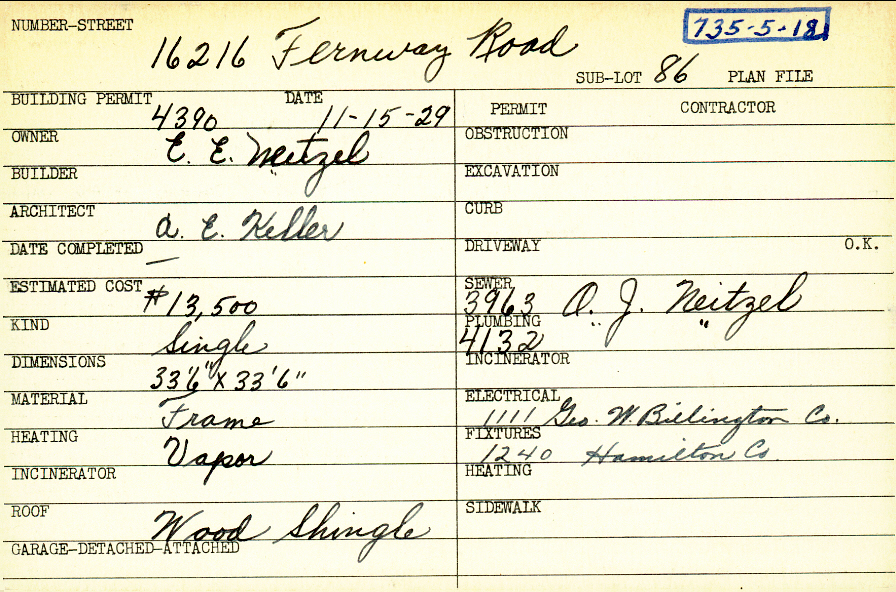 NUMBER-STREET 16216 Fernway Road 735-5-18
SUB-LOT 86 PLAN FILE
BUILDING PERMIT 4390 DATE 11-15-29
OWNER E. E. Neitzel
BUILDER "
ARCHITECT A. E. Keller
DATE COMPLETED —
ESTIMATED COST $13,500
KIND Single
DIMENSIONS 33'6" X 33'6"
MATERIAL Frame
HEATING Vapor
INCINERATOR
ROOF Wood Shingle
GARAGE-DETACHED-ATTACHED
PERMIT CONTRACTOR
OBSTRUCTION
EXCAVATION
CURB
DRIVEWAY O.K.
SEWER 3963 O. J. Neitzel
PLUMBING 4132 " "
INCINERATOR
ELECTRICAL 1111 Geo. W. Billington Co.
FIXTURES 1240 Hamilton Co
HEATING
SIDEWALK